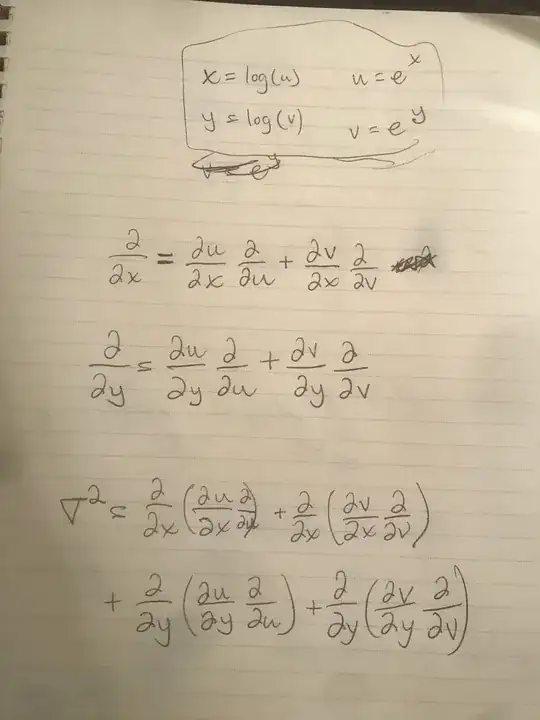 x = log(u) u = e^x
y = log(v) v = e^y
∂/∂x = ∂u/∂x ∂/∂u + ∂v/∂x ∂/∂v
∂/∂y = ∂u/∂y ∂/∂u + ∂v/∂y ∂/∂v
∇² = ∂/∂x (∂u/∂x ∂/∂u) + ∂/∂x (∂v/∂x ∂/∂v)
+ ∂/∂y (∂u/∂y ∂/∂u) + ∂/∂y (∂v/∂y ∂/∂v)